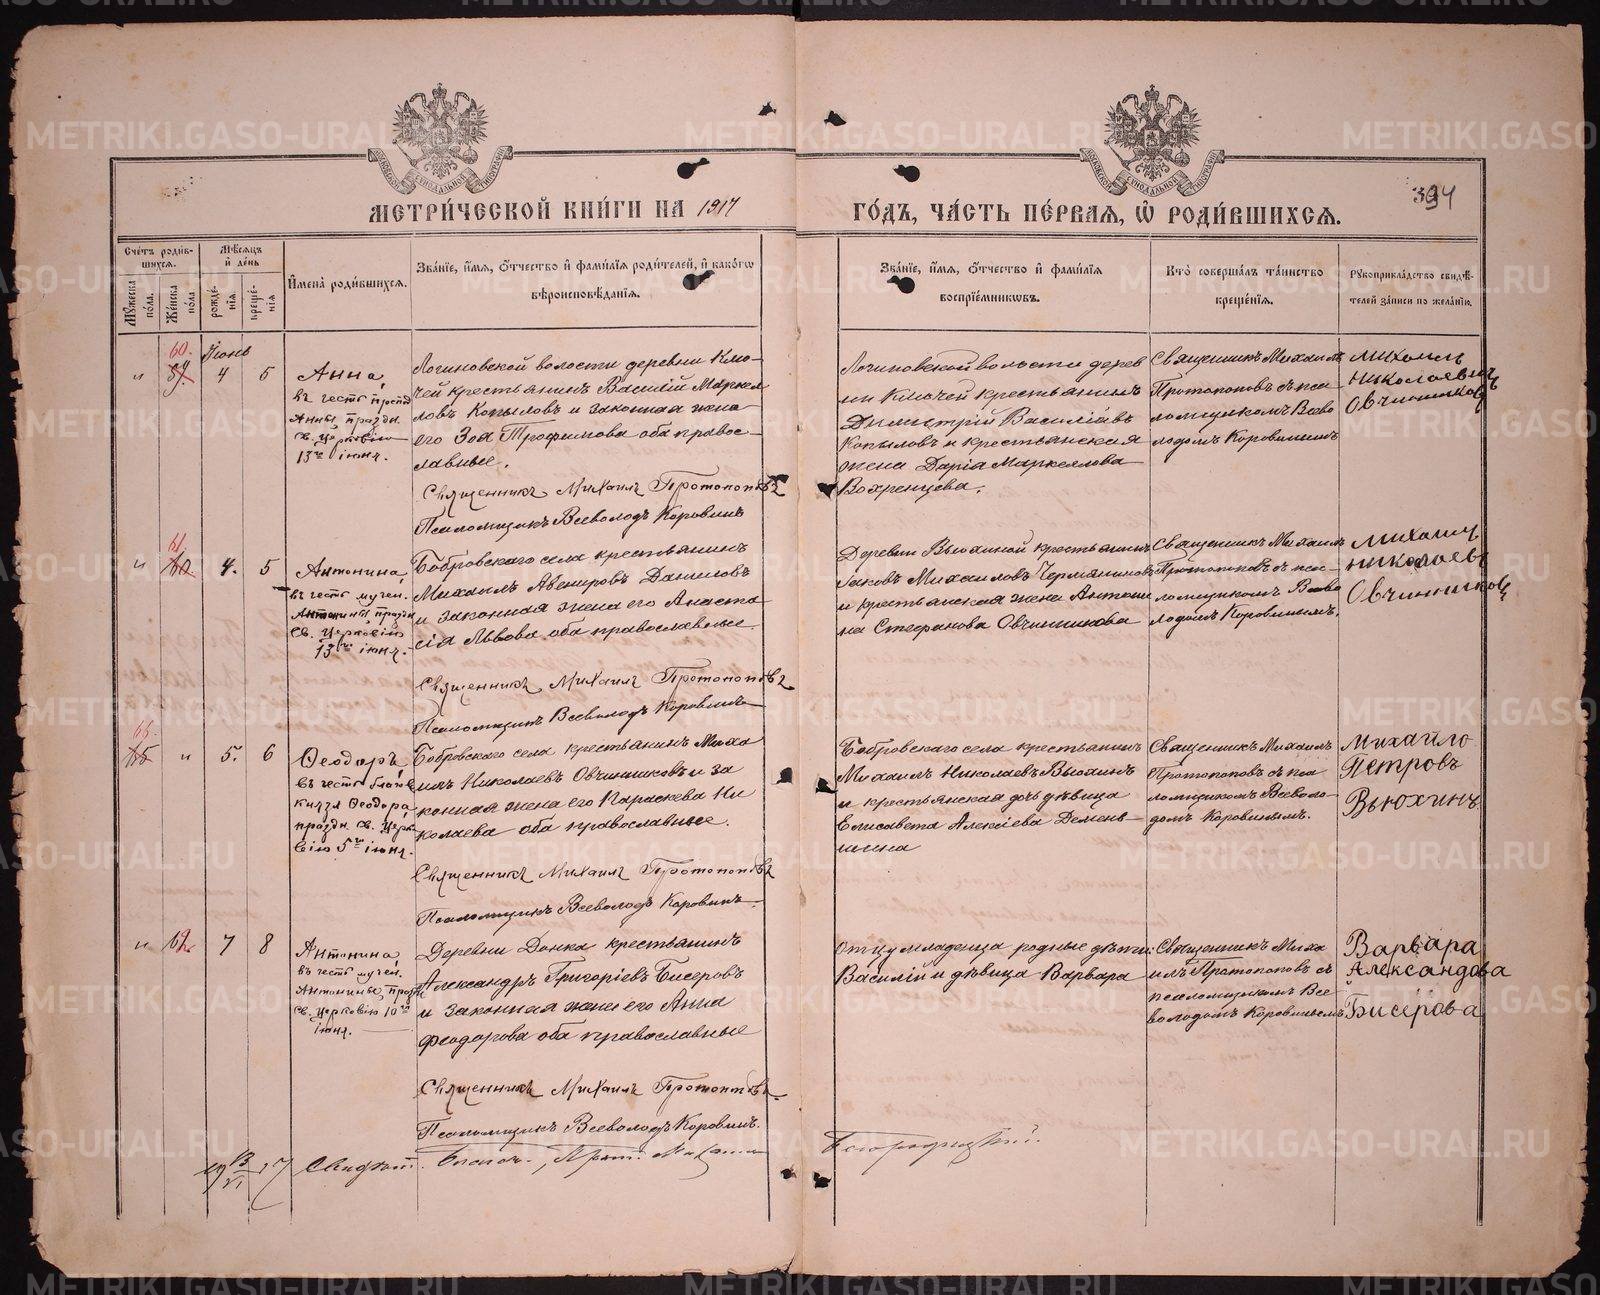 МЕТРИ́ЧЕСКОЙ КНИ́ГИ НА 1917
ГО́ДЪ, ЧА́СТЬ ПЕ́РВАЯ, Ѡ РОДИ́ВШИХСЯ.
394
Сче́тъ роди́в-
шихся.
Мꙋ́жеска по́ла.
Же́нска по́ла
Мѣ́сяцъ
и҆ де́нь
рожде́-
нїя
креще́-
нїя
И҆мена̀ роди́вшихся.
Зва́нїе, и҆́мя, ѻ҆́тчество и҆ фами́лїя роди́телей, и҆ како́гѡ
вѣроисповѣ́данїя.
Зва́нїе, и҆́мя, ѻ҆́тчество и҆ фами́лїя
воспрїе́мникѡвъ.
Кто̀ соверша́лъ та́инство
креще́нїя.
Рꙋкоприкла́дство свидѣ́-
телей за́писи по жела́нїю.
60. Іюнь
и 4 5
Анна,
въ честь
Анны, праздн.
св. Церковію
13го іюня.
Логиновской волости деревни Клю-
чей крестьянинъ Василій Маркел
ловъ Копыловъ и законная жена
его Зоя Трофимова оба правос-
лавные.
Священникъ Михаилъ Протопоповъ
Псаломщикъ Всеволодъ Коровинъ
Логиновской волости дерев
ни Ключей крестьянинъ
Димитрій Василіевъ
Копыловъ и крестьянская
жена Дарія Маркеллова
Вохренцева.
Священникъ Михаилъ
Протопоповъ съ пса-
ломщикомъ Всево
лодомъ Коровинымъ
Михаилъ
Николаевичъ
Овчинников
61.
и 4. 5
Антонина,
въ честь мучен.
Антонины, праздн
Св. Церковію
13го іюня.
Бобровскаго села крестьянинъ
Михаилъ Авенировъ Даниловъ
и законная жена его Анаста
сія Львова оба православные.
Священникъ Михаилъ Протопоповъ
Псаломщикъ Всеволодъ Коровинъ
Деревни Вьюхиной крестьянинъ
Іаковъ Михаиловъ Чермяниновъ
и крестьянская жена Антони
на Стефанова Овчинникова
Священникъ Михаилъ
Протопоповъ съ пса-
ломщикомъ Всево
лодомъ Коровинымъ.
Михаилъ
Николаевъ
Овчинниковъ
65.
и 5. 6
Ѳеодоръ,
въ честь благов
князя Ѳеодора,
праздн. св. Церк
вію 5го іюня.
Бобровскаго села крестьянинъ Миха
илъ Николаевъ Овчинниковъ и за
конная жена его Параскева Ни
колаева оба православные.
Священникъ Михаилъ Протопоповъ
Псаломщикъ Всеволодъ Коровинъ
Бобровскаго села крестьянинъ
Михаилъ Николаевъ Вьюхинъ
и крестьянская дочь дѣвица
Елисавета Алексіева Демень-
шина
Священникъ Михаилъ
Протопоповъ съ пса
ломщикомъ Всеволо-
домъ Коровинымъ.
Михайло
Петровъ
Вьюхинъ
и 62. 7 8
Антонина,
въ честь мучен.
Антонины, праздн
св. Церковію 10го
іюня.
Деревни Донка крестьянинъ
Александръ Григоріевъ Бисеровъ
и законная жена его Анна
Феодорова оба православные
Священникъ Михаилъ Протопоповъ
Псаломщикъ Всеволодъ Коровинъ.
Отцу младенца родные дѣти:
Василій и дѣвица Варвара
Священникъ Миха
илъ Протопоповъ съ
псаломщикомъ Все
володомъ Коровинымъ
Варвара
Александова
Бисерова
19 13/VI 17 Свидѣт. Благоч., Прот. Михаилъ
METRIKI.GASO-URAL.RU